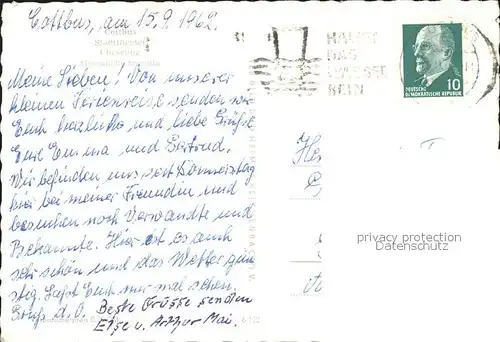 Cottbus, am 15.9.1962.
Cottbus
Stadttheater
HALTET
DAS
WASSER
REIN
10
DEUTSCHE
DEMOKRATISCHE REPUBLIK
Meine Lieben! Von unserer
kleinen Ferienreise senden wir
Euch herzliche und liebe Grüße
Eure Emma und Gertrud.
Wir befinden uns seit Donnerstag
hier bei meiner Freundin und
besuchen noch Verwandte und
Bekannte. Hier ist es auch
sehr schön und das Wetter gün
stig. Laßt Euch nur mal sehen.
Gruß d.O.
Beste Grüsse senden
Else u. Arthur Mai.
privacy protection
DATENSCHUTZ